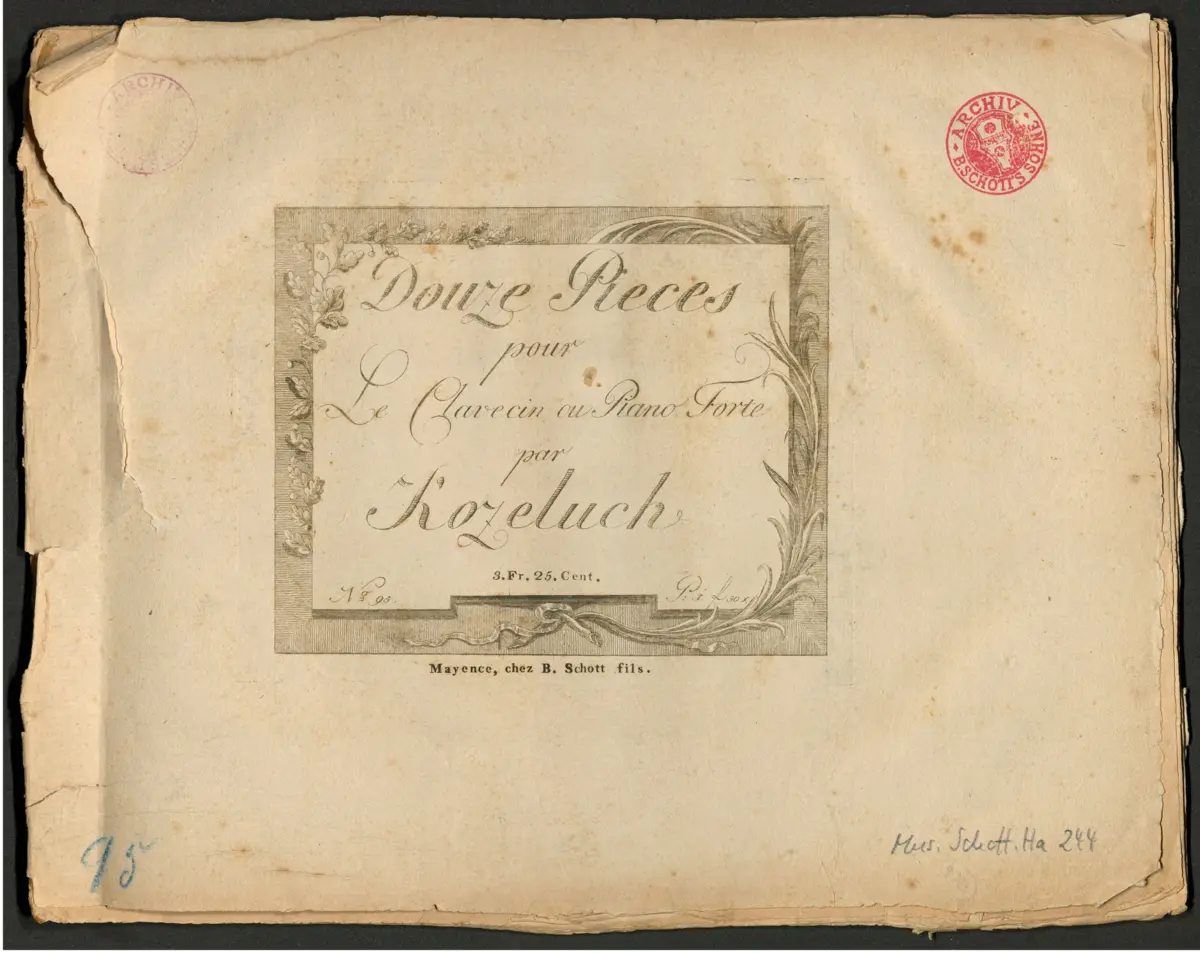 ARCHIV
ARCHIV
B.SCHOTT'S SÖHNE
Douze Pieces
pour
Le Clavecin ou Piano Forte
par
Kozeluch
3.Fr. 25. Cent.
Nº
Mayence, chez B. Schott fils.
95
Mus. Schott. Ha 244